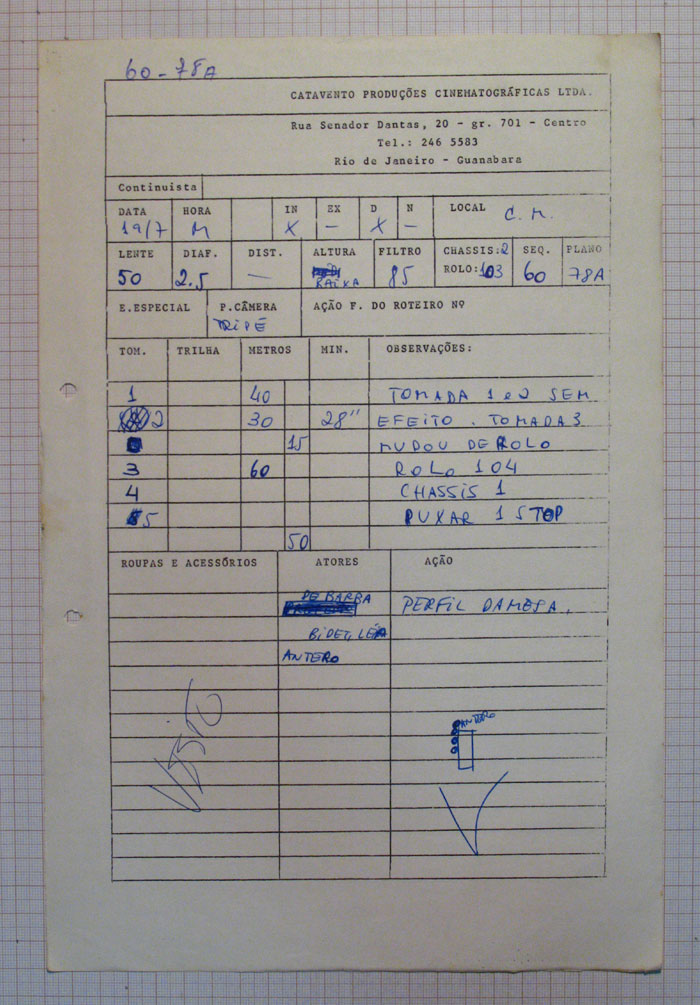 60-78A
CATAVENTO PRODUÇÕES CINEMATOGRÁFICAS LTDA.
Rua Senador Dantas, 20 - gr. 701 - Centro
Tel.: 246 5583
Rio de Janeiro - Guanabara
Continuista
DATA HORA IN EX D N LOCAL C. M.
19/7 M X - X -
LENTE DIAF. DIST. ALTURA FILTRO CHASSIS:2 SEQ. PLANO
50 2.5 — BAIXA 85 ROLO:103 60 78A
E.ESPECIAL P.CÂMERA AÇÃO F. DO ROTEIRO Nº
TRIPÉ
TOM. TRILHA METROS MIN. OBSERVAÇÕES:
1 40 TOMADA 1 e 2 SEM
2 30 28" EFEITO. TOMADA 3
15 MUDOU DE ROLO
3 60 ROLO 104
4 CHASSIS 1
5 PUXAR 1 STOP
50
ROUPAS E ACESSÓRIOS ATORES AÇÃO
PE BARBA
PERFIL DA MESA.
BIDET, LÉA
ANTERO
ANTERO